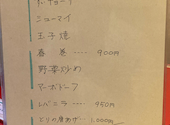 シューマイ
玉子焼
春巻 ‥‥ 900円
野菜炒め
マーボドーフ
レバニラ ‥‥ 950円
とりの唐あげ ‥‥ 1,000円